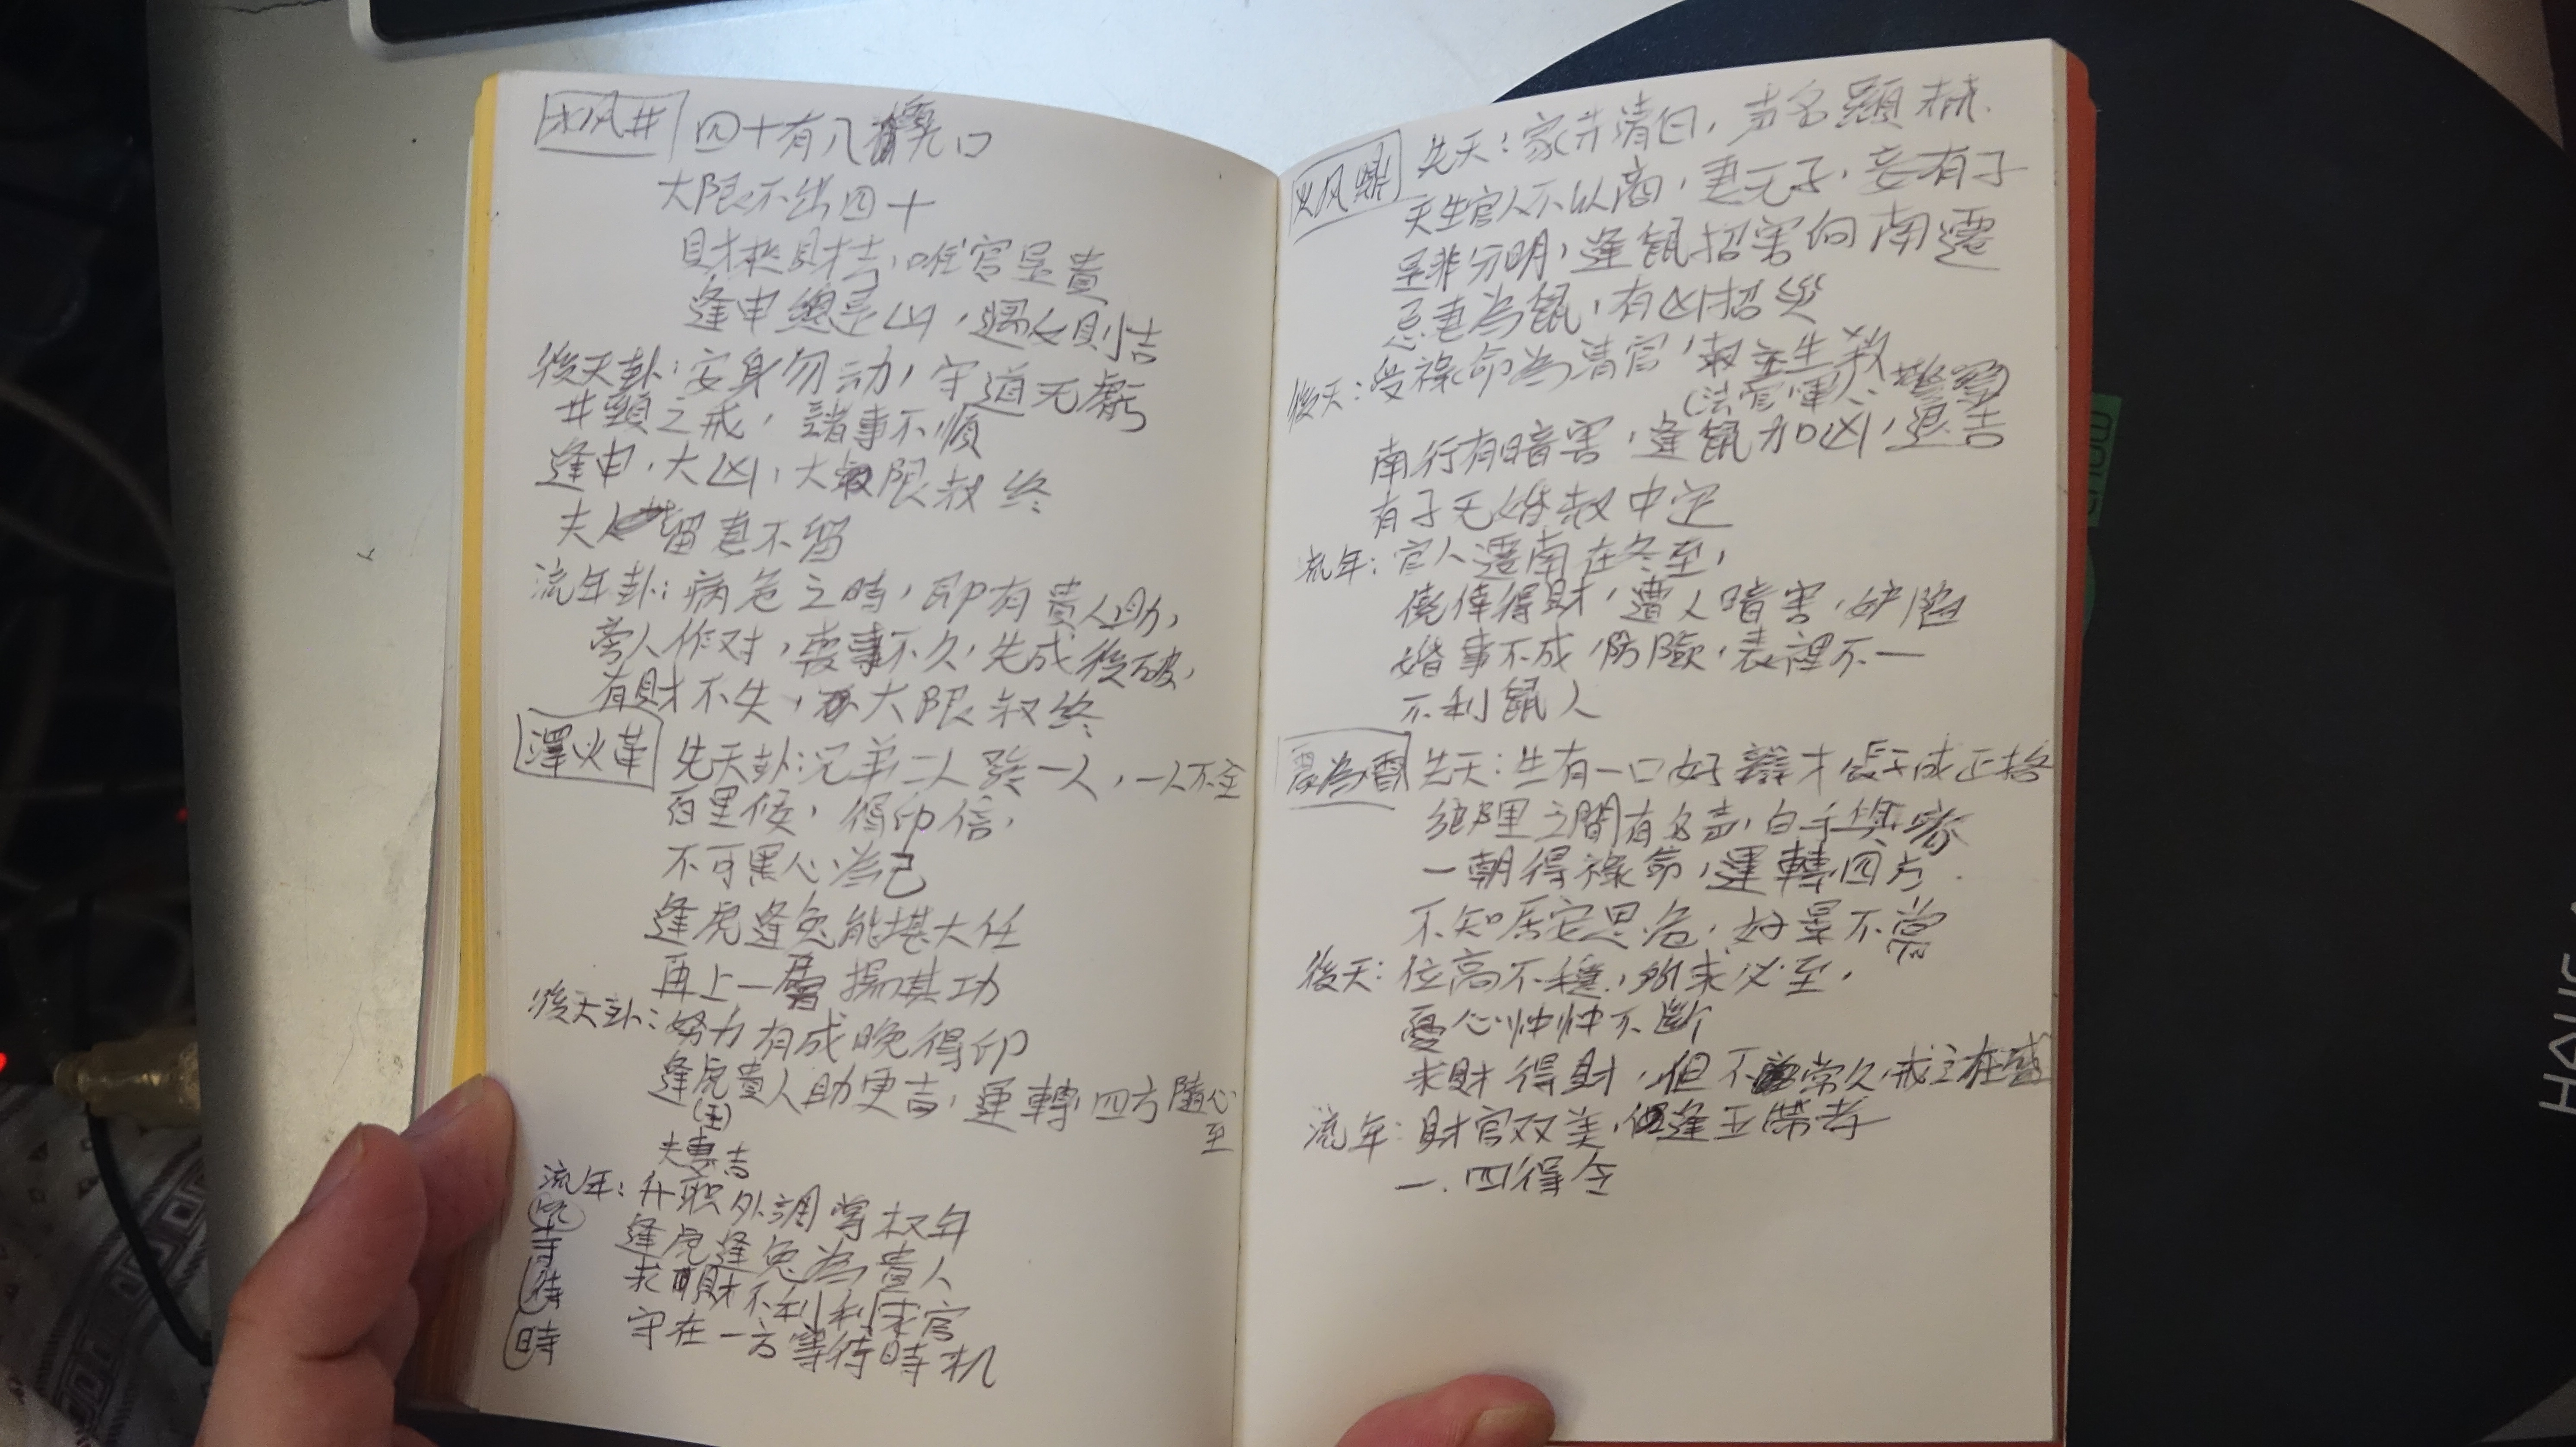 水风井 四十有八有虎口
大限不出四十
財來財去，唯官是貴
逢申總是凶，遇女則吉
後天卦：安身勿动，守道无虧
井頭之戒，諸事不順
逢申，大凶，大限叔終
夫留妻不留
流年卦：病危之時，即有貴人助，
旁人作对，喪事不久，先成後破，
有財不失，大限叔終
澤火革 先天卦：兄弟二人發一人，一人不全
百里候，得印信，
不可黑心為己
逢虎逢兔能堪大任
再上一層揚其功
後天卦：努力有成晚得印
逢虎貴人助更吉，運轉四方隨心
至
(主)
夫妻吉
流年：升职外調掌权年
逢虎逢兔為貴人
求財不利利求官
守在一方等待時机
待
時
火风鼎 先天：家井清白，声名顯赫.
天生官人不以商，妻无子，妾有子
是非分明，逢鼠招害向南遷
忌妻為鼠，有凶招災
後天：受祿命為清官，叔主生殺
(法官軍人警察)
南行有暗害，逢鼠加凶，退吉
有子无婚叔中定
流年：官人遷南在冬至，
僥倖得財，遭人暗害，妒陷
婚事不成，防險，表裡不一
不利鼠人
震為雷 先天：生有一口好辯才，辰子成正格
鄉里之間有名声，白手興家
一朝得祿命，運轉四方.
不知居安思危，好景不常
後天：位高不穩，所求必至，
憂心忡忡不斷
求財得財，但不常久，戒之在盛
流年：財官双美，但逢五帶孝
一.四得令
HONS